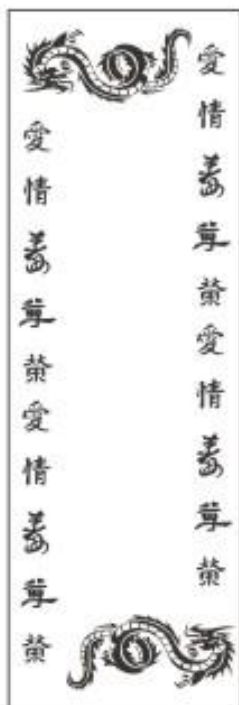 愛情尊榮愛情尊榮
愛情尊榮愛情尊榮